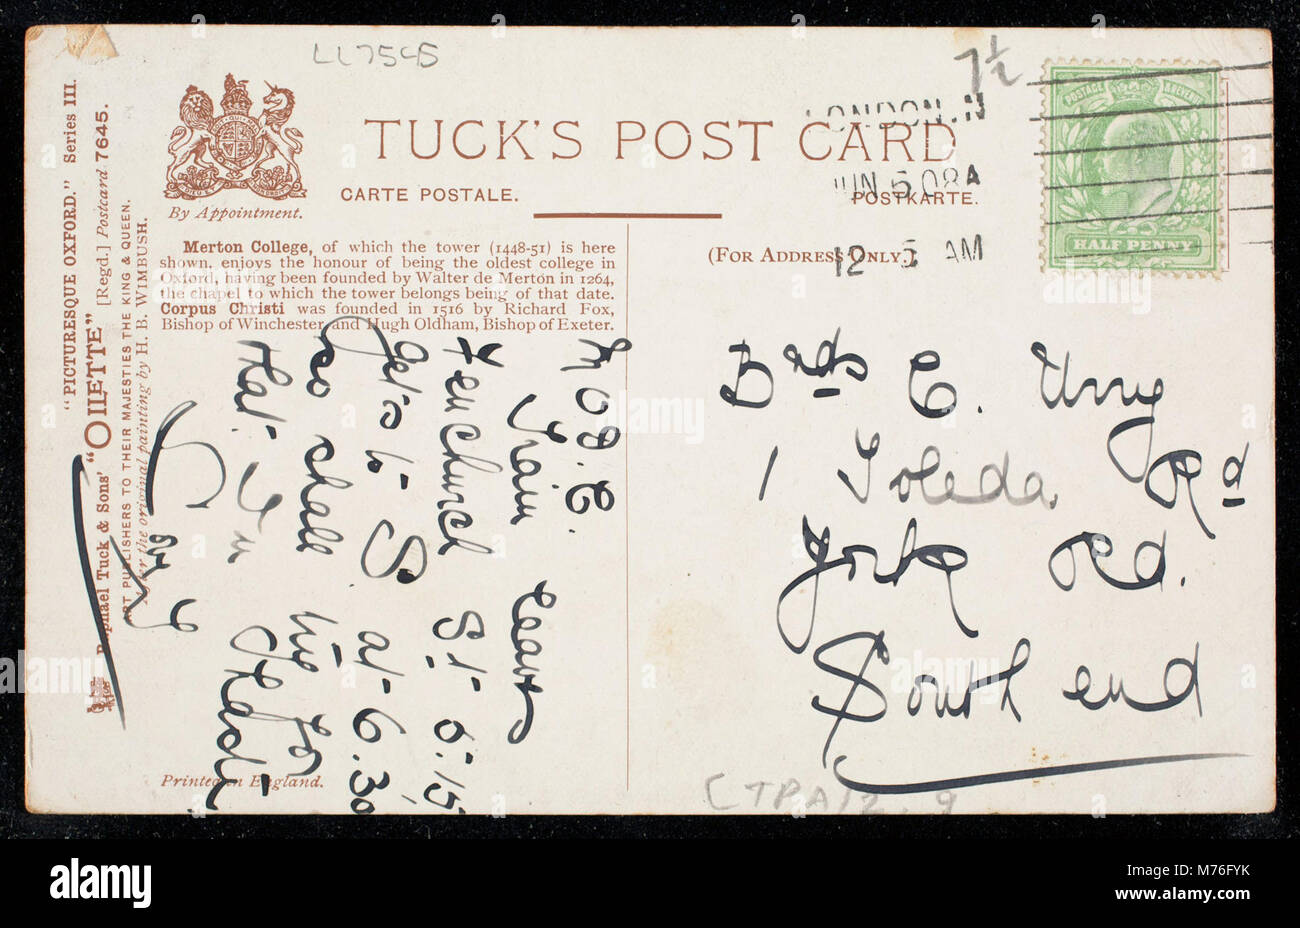 LL7545
7½
LONDON.N
JUN 5 08A
12 5 AM
POSTAGE & REVENUE
HALF PENNY
TUCK'S POST CARD
CARTE POSTALE.
POSTKARTE.
By Appointment.
(FOR ADDRESS ONLY.)
Merton College, of which the tower (1448-51) is here
shown, enjoys the honour of being the oldest college in
Oxford, having been founded by Walter de Merton in 1264,
the chapel to which the tower belongs being of that date.
Corpus Christi was founded in 1516 by Richard Fox,
Bishop of Winchester and Hugh Oldham, Bishop of Exeter.
"PICTURESQUE OXFORD." Series III.
Raphael Tuck & Sons' "OILETTE" [Regd.] Postcard 7645.
ART PUBLISHERS TO THEIR MAJESTIES THE KING & QUEEN.
After the original painting by H. B. WIMBUSH.
Printed in England.
Train leaves
Fenchurch St 5.15
gets to S at 6.30
so shall
that
C. Urry
1 Toledo Rd
York Rd.
South end